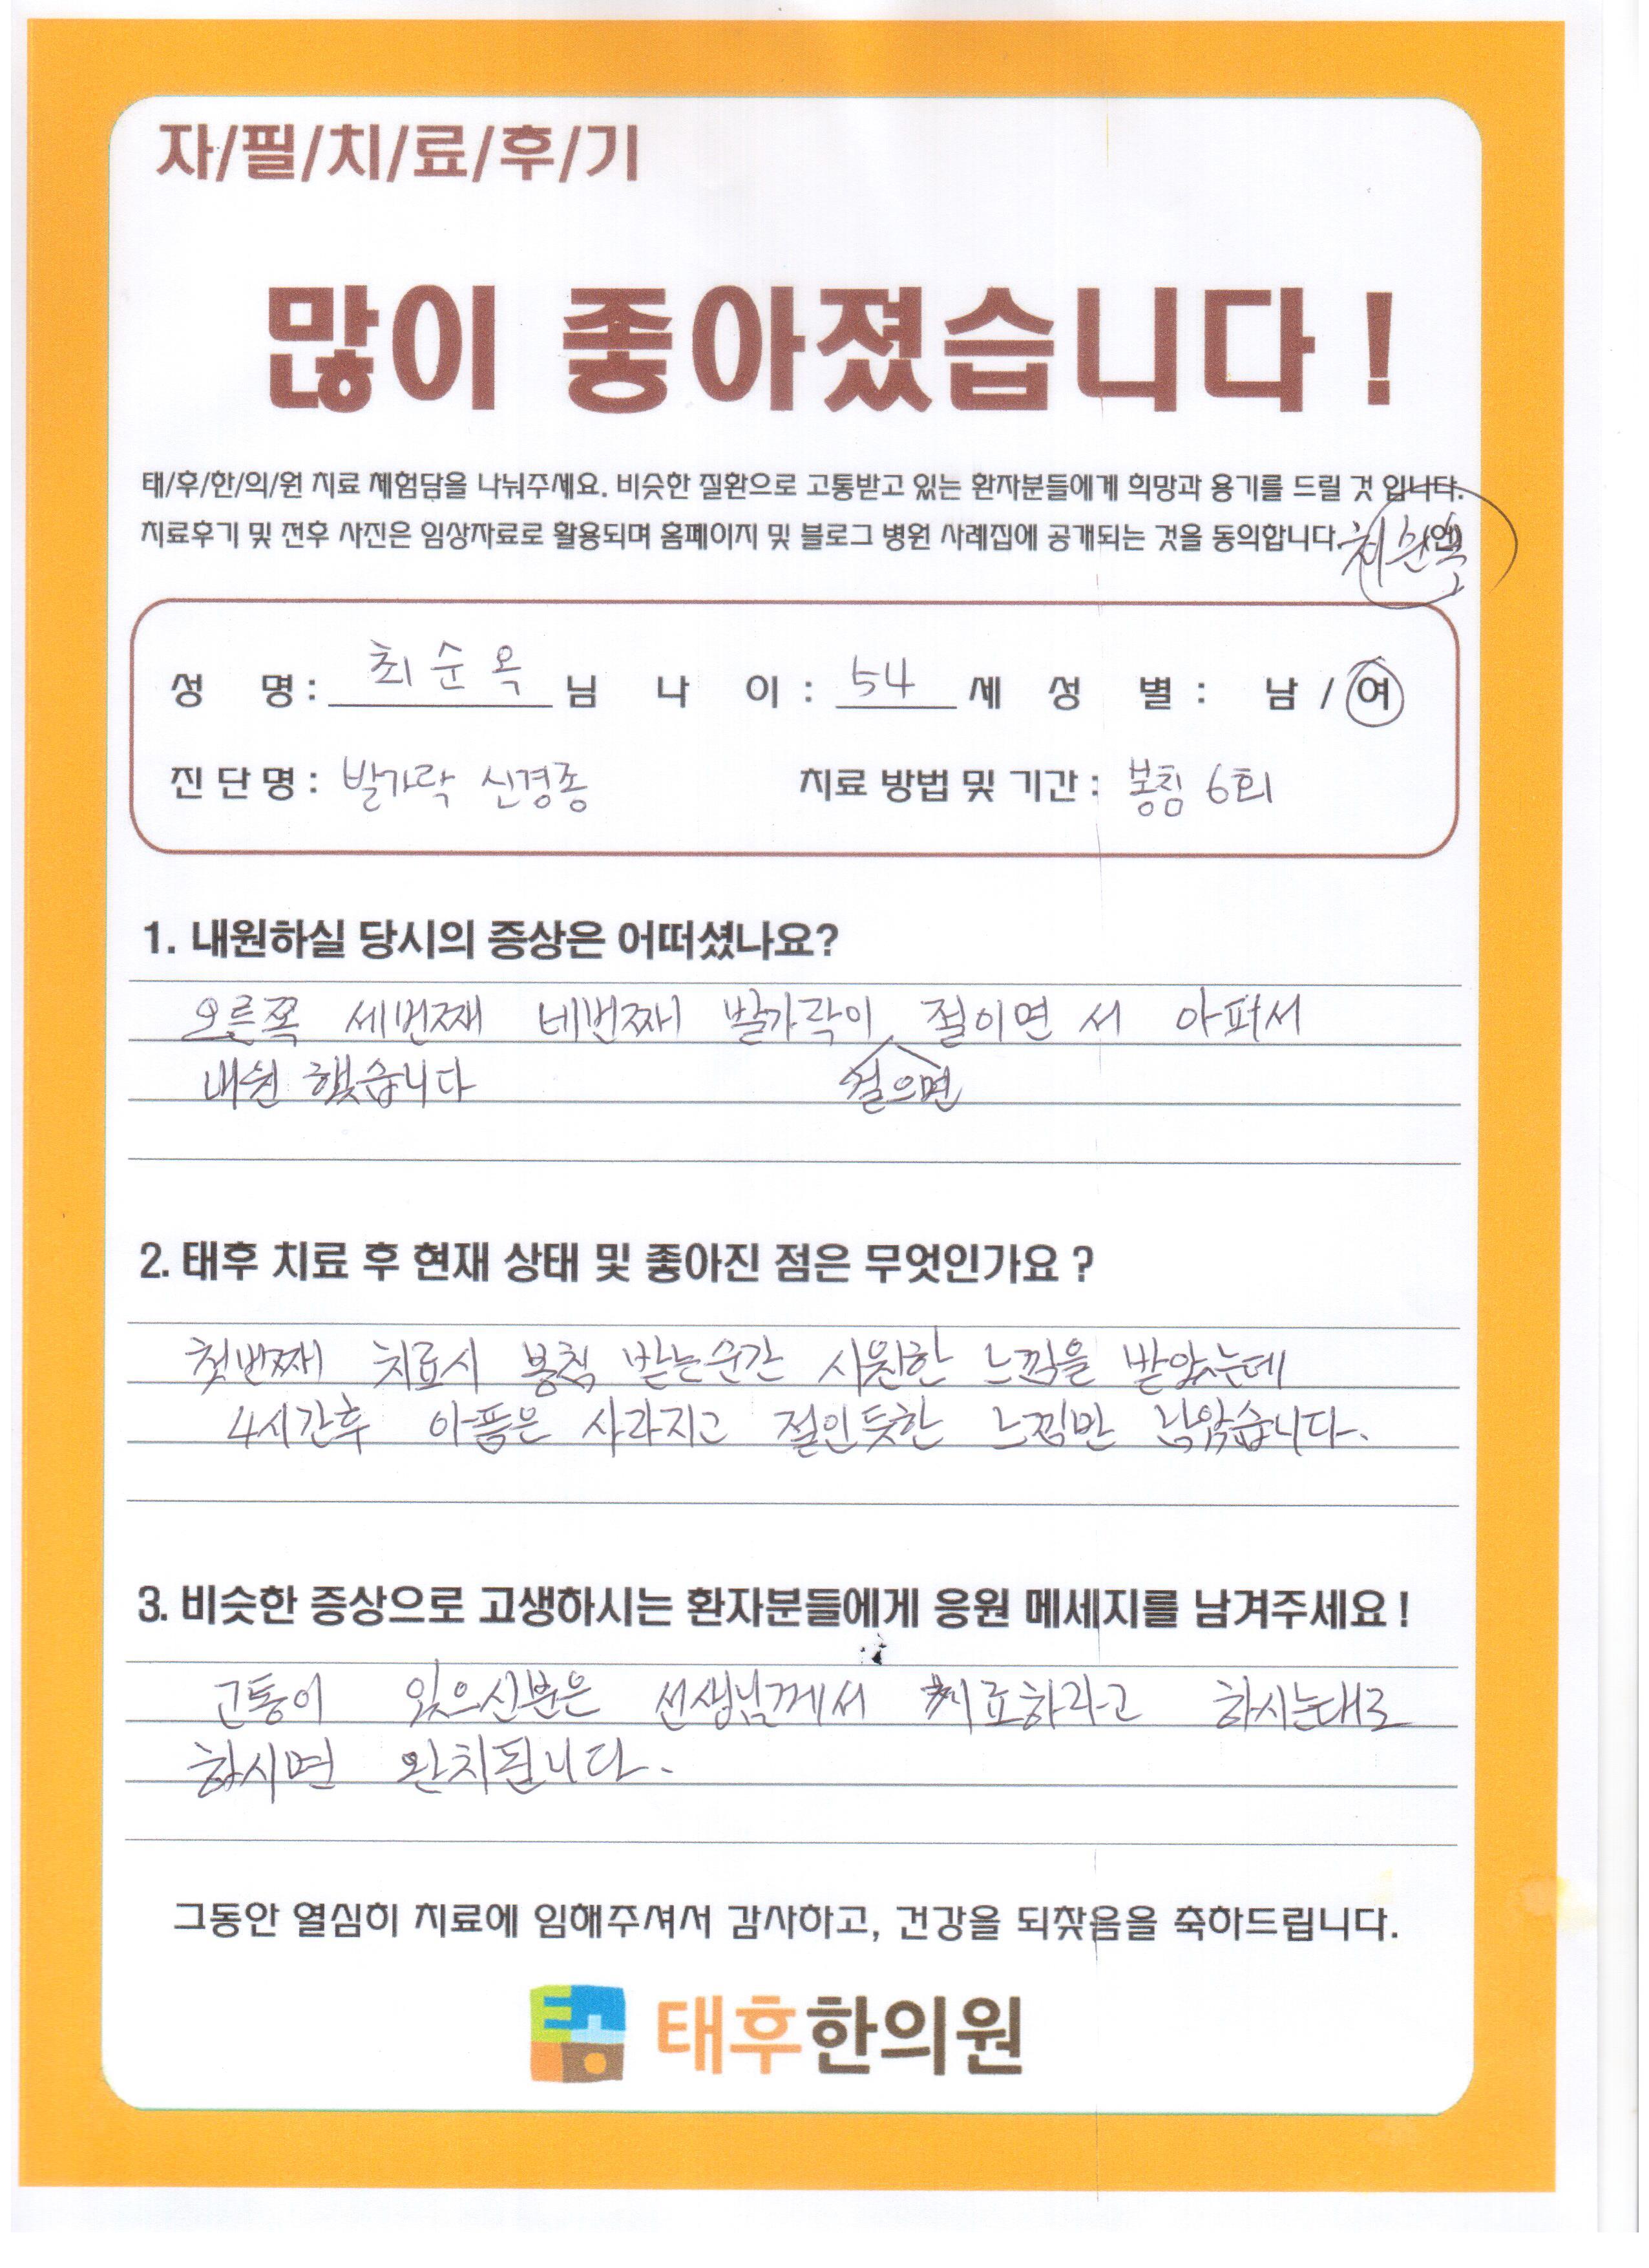 자/필/치/료/후/기
많이 좋아졌습니다 !
태/후/한/의/원 치료 체험담을 나눠주세요. 비슷한 질환으로 고통받고 있는 환자분들에게 희망과 용기를 드릴 것 입니다.
치료후기 및 전후 사진은 임상자료로 활용되며 홈페이지 및 블로그 병원 사례집에 공개되는 것을 동의합니다. 최순옥
성 명 : 최순옥 님 나 이 : 54 세 성 별 : 남 / 여
진 단 명 : 발가락 신경종 치료 방법 및 기간 : 봉침 6회
1. 내원하실 당시의 증상은 어떠셨나요?
오른쪽 세번째 네번째 발가락이 걸으면 절이면 서 아퍼서
내원 했습니다
2. 태후 치료 후 현재 상태 및 좋아진 점은 무엇인가요 ?
첫번째 치료시 봉침 받는순간 시원한 느낌을 받았는데
4시간후 아픔은 사라지고 절인듯한 느낌만 남았습니다.
3. 비슷한 증상으로 고생하시는 환자분들에게 응원 메세지를 남겨주세요 !
고통이 있으신분은 선생님께서 치료하라고 하시는대로
하시면 완치됩니다.
그동안 열심히 치료에 임해주셔서 감사하고, 건강을 되찾음을 축하드립니다.
태후한의원